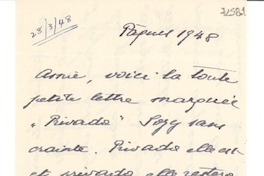 28/3/48
Pâques 1948
Amie, voici la toute
petite lettre marquée
"Privado" Sozy sans
crainte. Privado elle est
et privado elle restera